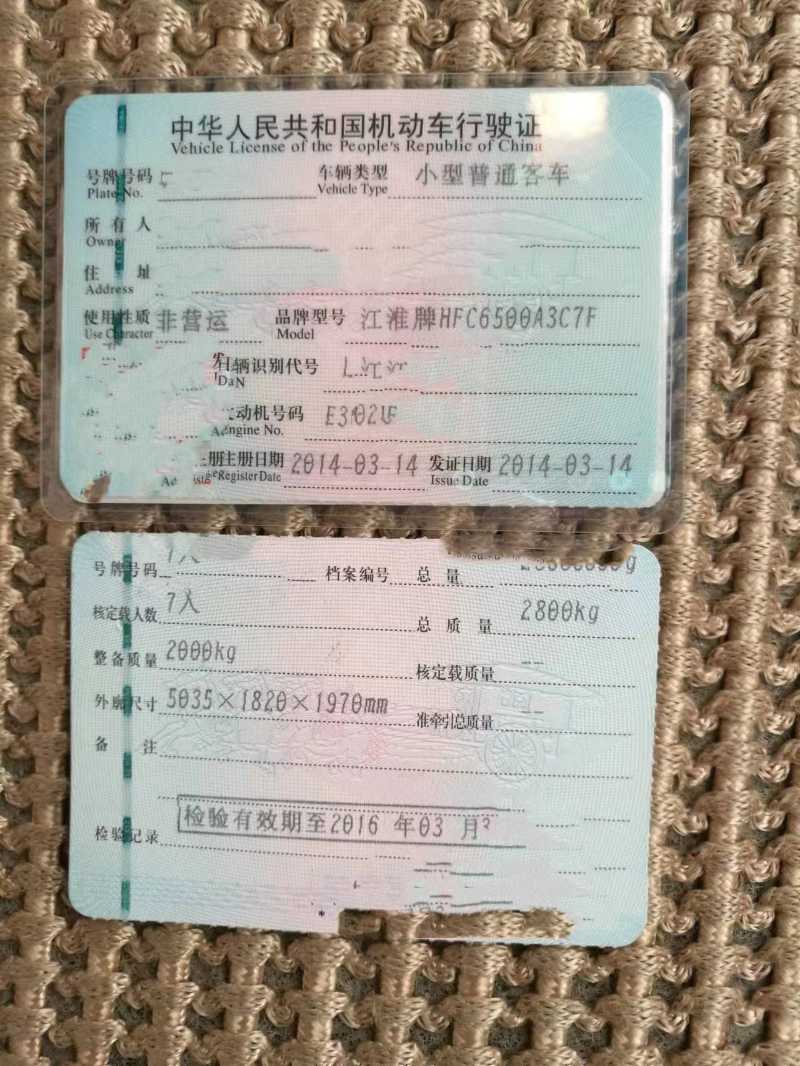 中华人民共和国机动车行驶证
Vehicle License of the People's Republic of China
号牌号码 车辆类型 小型普通客车
Plate No. Vehicle Type
所有人
Owner
住址
Address
使用性质 非营运 品牌型号 江淮牌HFC6500A3C7F
Use Character Model
车辆识别代号
动机号码 E3102UF
Engine No.
注册日期 2014-03-14 发证日期 2014-03-14
Register Date Issue Date
号牌号码 档案编号 总量
核定载人数 7人 总质量 2800kg
整备质量 2000kg 核定载质量 --
外廓尺寸 5035×1820×1970mm 准牵引总质量 --
备注
检验记录 检验有效期至2016年03月